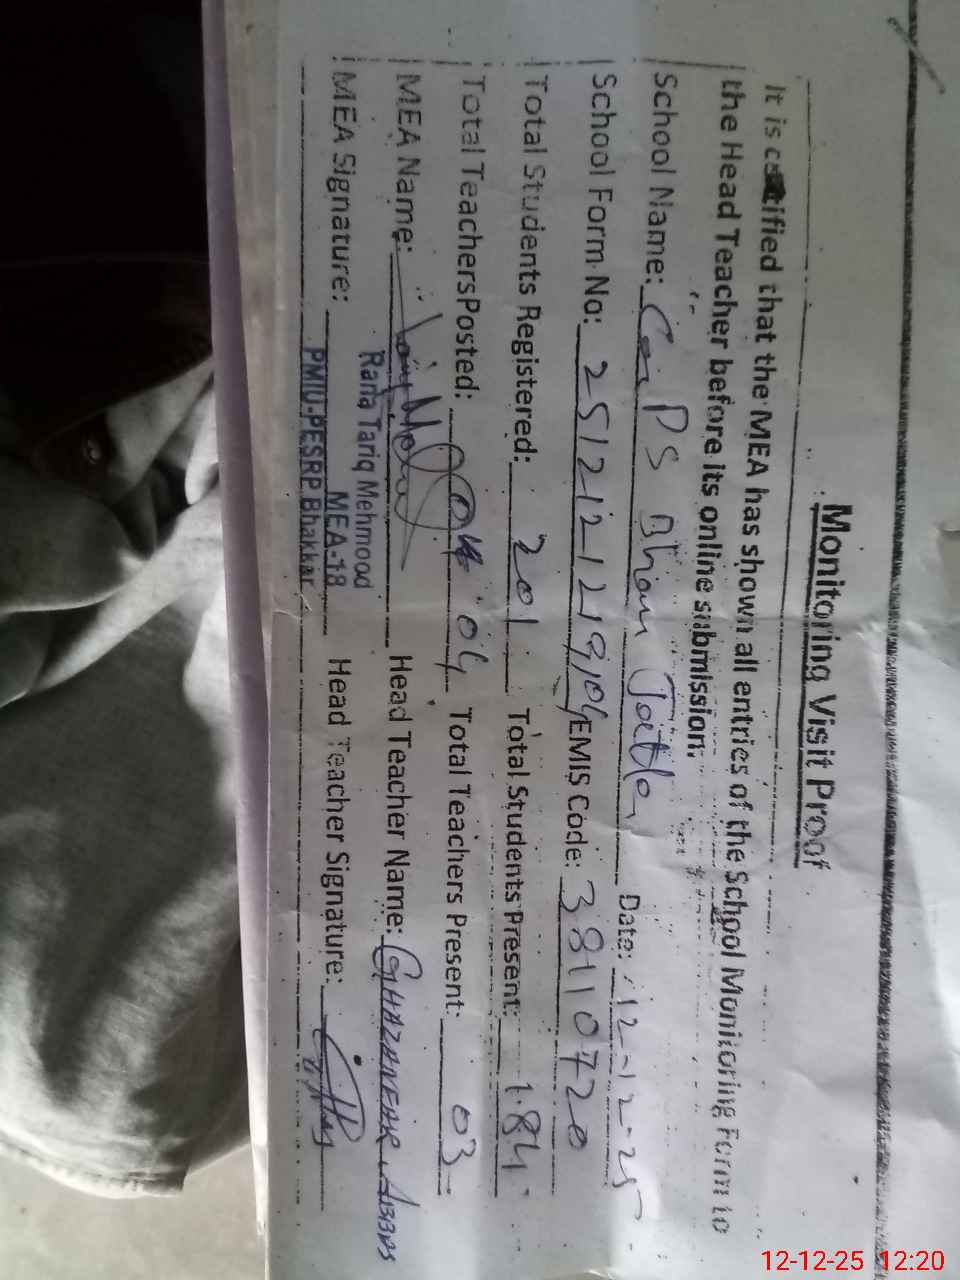 Monitoring Visit Proof
It is certified that the MEA has shown all entries of the School Monitoring Form to
the Head Teacher before its online submission.
School Name: PS Bhan Date: 12-12-25
School Form No: 251212121904 EMIS Code: 38110720
Total Students Registered: 201 Total Students Present: 184
Total Teachers Posted: 04 Total Teachers Present: 03
MEA Name: Head Teacher Name: GHAZANFAR ABBAS
Rana Tariq Mehmood
MEA Signature: MEA-18 Head Teacher Signature:
PMIU-PESRP Bhakkar
12-12-25 12:20